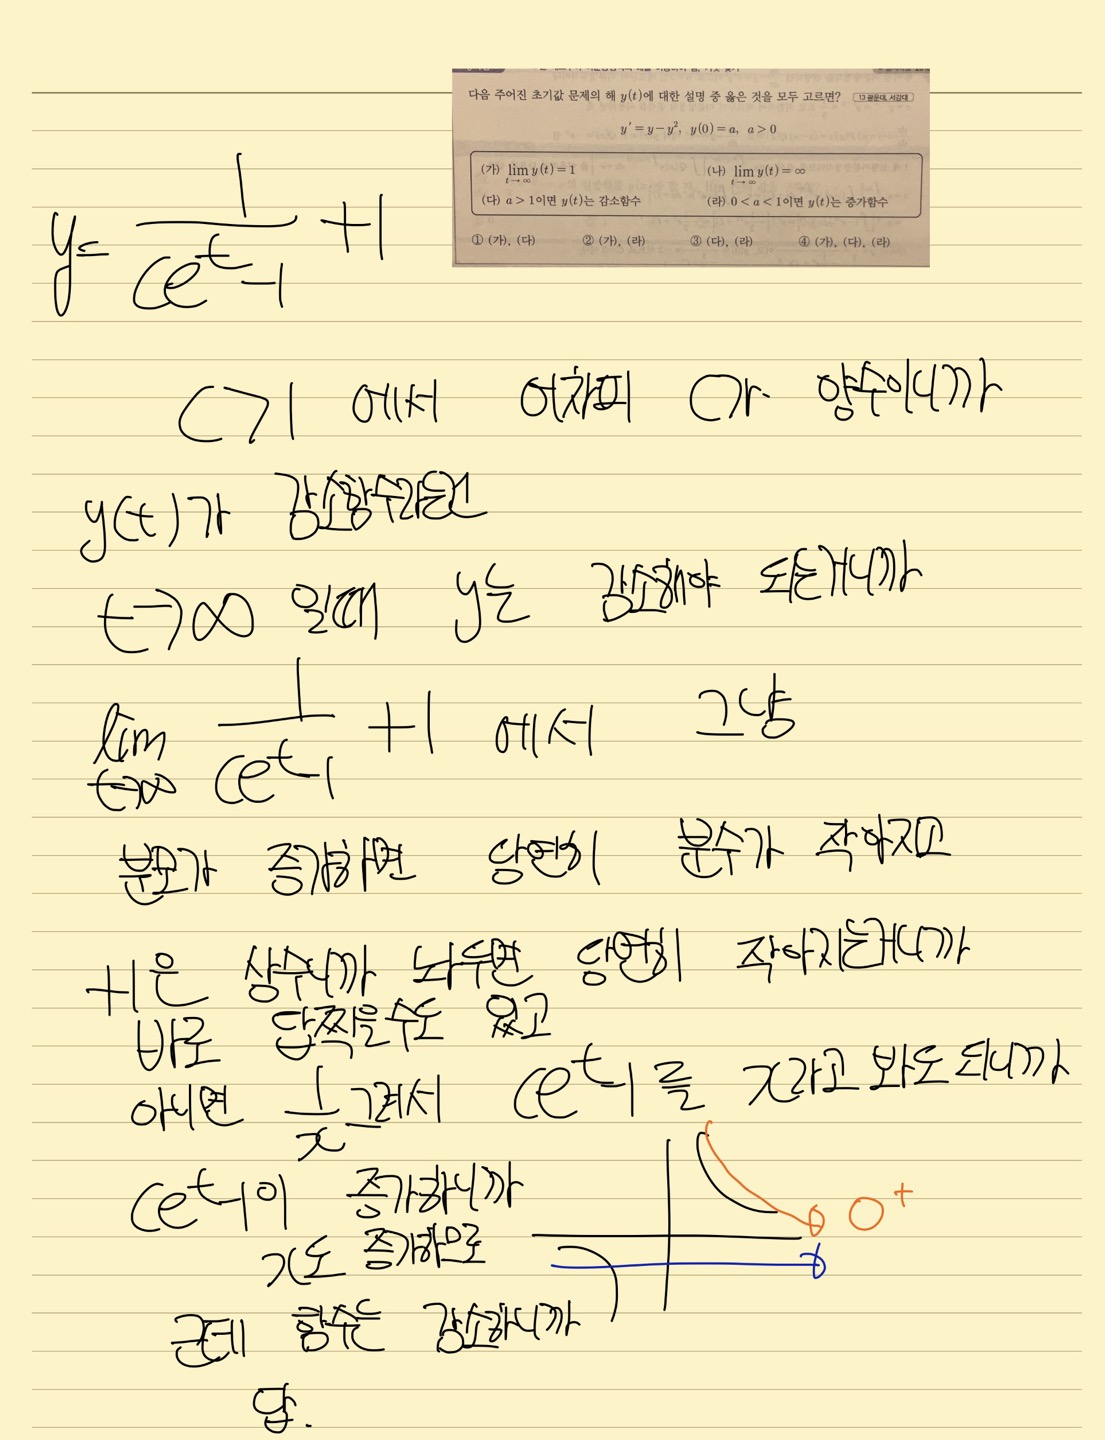 다음 주어진 초기값 문제의 해 y(t)에 대한 설명 중 옳은 것을 모두 고르면? 13 광운대, 서강대
y′ = y − y², y(0) = a, a > 0
(가) lim t→∞ y(t) = 1 (나) lim t→∞ y(t) = ∞
(다) a > 1이면 y(t)는 감소함수 (라) 0 < a < 1이면 y(t)는 증가함수
① (가), (다) ② (가), (라) ③ (다), (라) ④ (가), (다), (라)
y= 1/(ce^t-1) +1
C>1 에서 어차피 C가 양수이니까
y(t)가 감소함수라는건
t→∞ 일때 y는 감소해야 되는거니까
lim t→∞ 1/(ce^t-1) +1 에서 그냥
분모가 증가하면 당연히 분수가 작아지고
+1은 상수니까 놔두면 당연히 작아지는거니까
바로 답찍을수도 있고
아니면 1/x 그려서 ce^t-1를 x라고 봐도 되니까
ce^t-1이 증가하니까
0⁺
x도 증가하므로
근데 함수는 감소하니까
답.